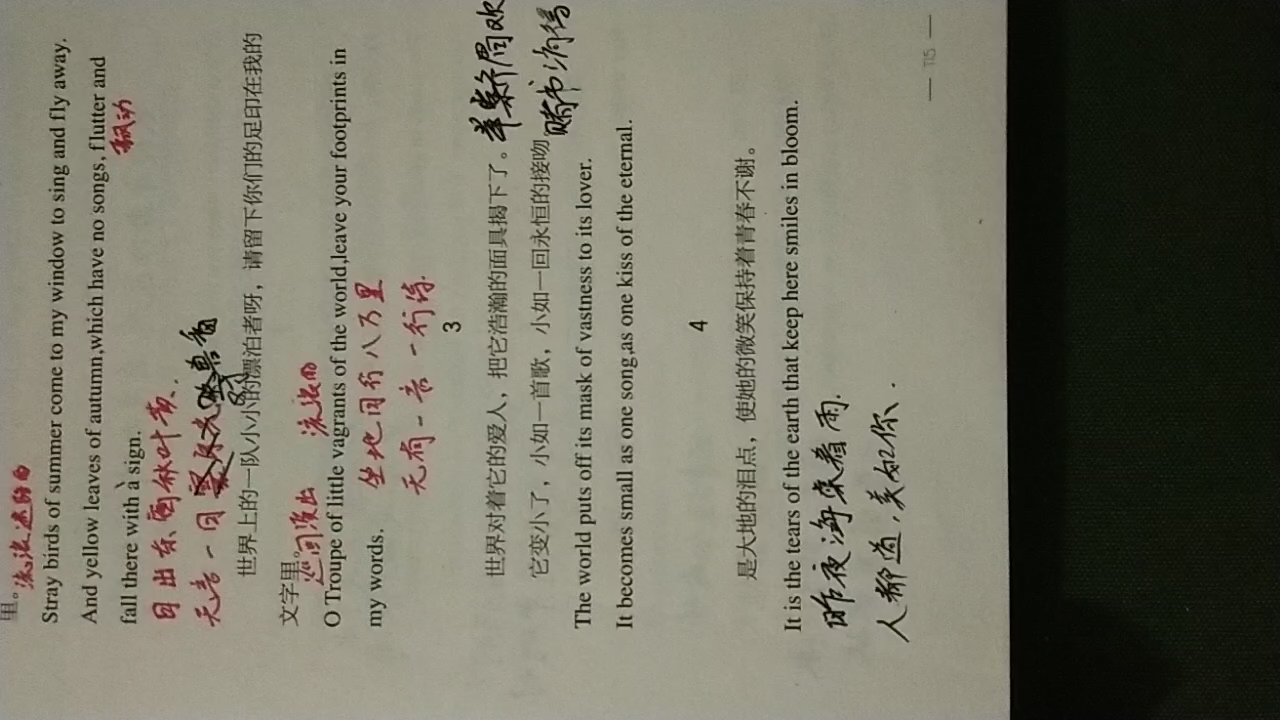 里。流浪迷路的
Stray birds of summer come to my window to sing and fly away.
And yellow leaves of autumn,which have no songs, flutter and
飘动
fall there with a sign.
日出东 林叶黄.
无言一日
世界上的一队小小的漂泊者呀，请留下你们的足印在我的
文字里。
巡回演出 流浪的
O Troupe of little vagrants of the world,leave your footprints in
my words.
坐地日行八万里
无有一言一行诗.
3
世界对着它的爱人，把它浩瀚的面具揭下了。
它变小了，小如一首歌，小如一回永恒的接吻
The world puts off its mask of vastness to its lover.
It becomes small as one song,as one kiss of the eternal.
4
是大地的泪点，使她的微笑保持着青春不谢。
It is the tears of the earth that keep here smiles in bloom.
昨夜海棠着雨.
人都道，美如你.
— 115 —